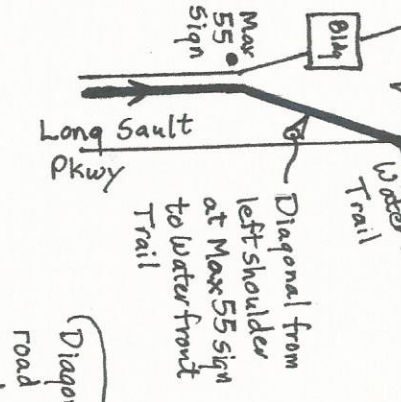 Max
55
Sign
Bldg
Long Sault
Pkwy
Water
Trail
Diagonal from
left shoulder
at Max 55 sign
to Waterfront
Trail
Diagon
road